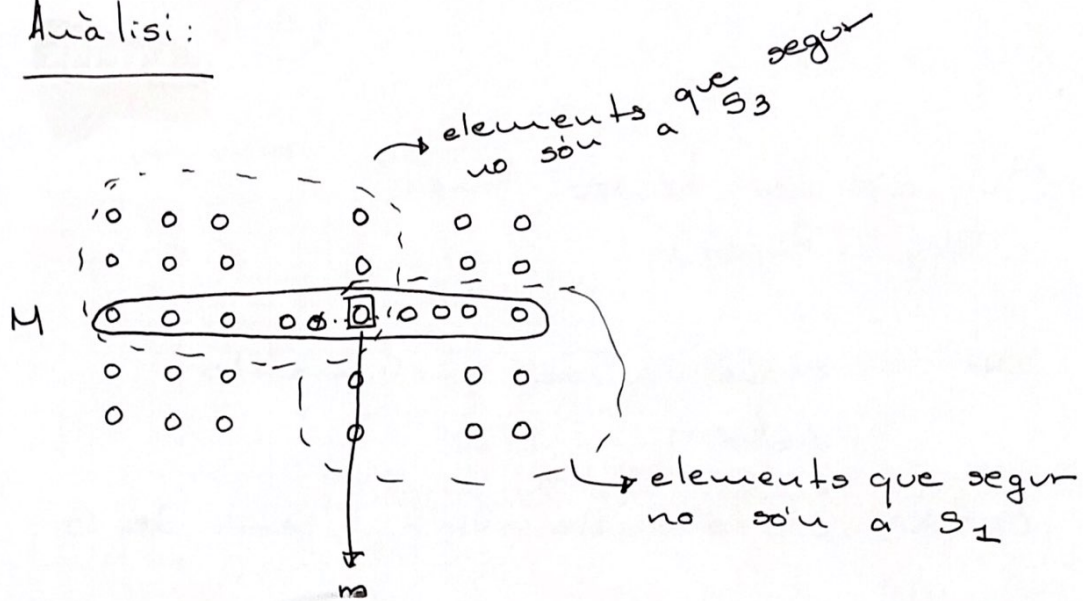 Anàlisi:
elements que segur
no són a S3
M
elements que segur
no són a S1
m